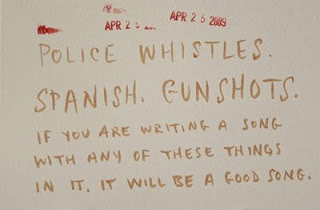 APR 2 5 2009
POLICE WHISTLES.
SPANISH. GUNSHOTS.
IF YOU ARE WRITING A SONG
WITH ANY OF THESE THINGS
IN IT, IT WILL BE A GOOD SONG.